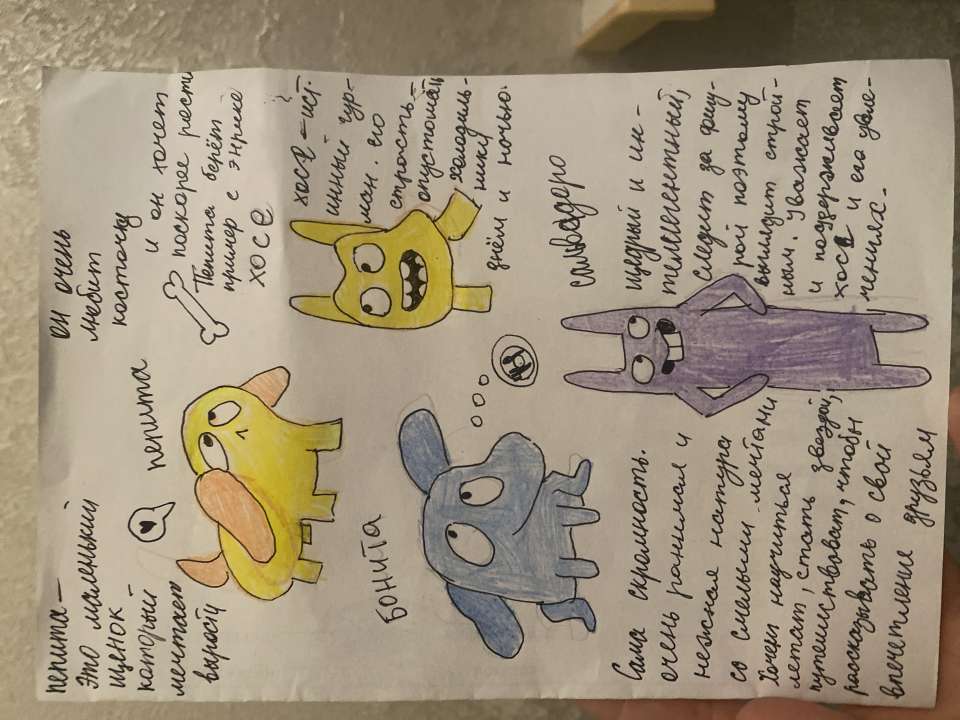 пепита –
Это маленький
щенок
который
мечтает
вырой
пепита
ей очень
любит
косточку
и он хочет
поскорее рости
Пепита берёт
пример с энрике
хосе
хосе – ист
инный гур-
ман. его
страсть –
опустошать
холодиль-
нику
днём и ночью.
БОНИТА
Сама скромность.
очень ранимая и
нежная натура
со смелыми мечтами
Хочет научиться
летат, стать звездой,
путешествоват, чтобы
рассказывать о свой
впечетление друзьям
сальвадоро
щедрый и ин-
телегентный,
следит за фигу-
рой поэтому
выглядит строй-
ным. Уважает
и поддерживает
хосе и его увле-
чениях.